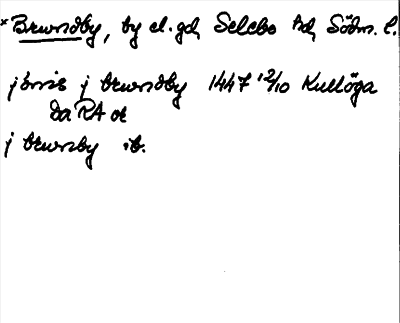 *Brundby, by el. gd, Selebo hd, Södm. l.
jönis j brundby 1447 12/10 Kullöga
Da RA or
j brunsby ib.